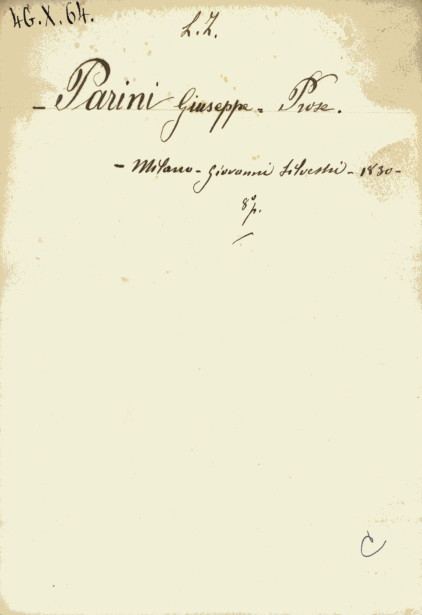 4G.X.64.
L.Z.
- Parini Giuseppe - Prose.
- Milano - Giovanni Silvestri - 1830 -
8° p.
C